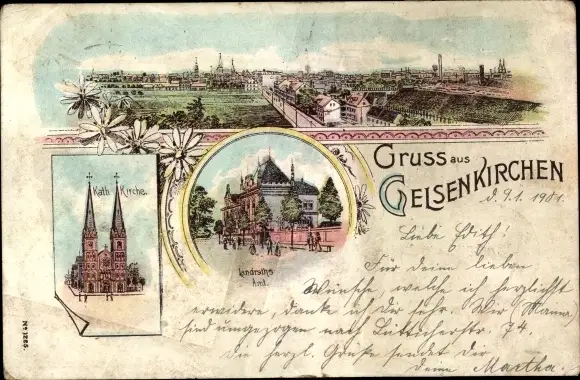 Gruss aus
GELSENKIRCHEN
d. 9.1. 1901.
Kath. Kirche.
Landraths
Amt.
Liebe Edith!
Für deine lieben
Wünsche welche ich herzlichst
erwidere, danke ich dir sehr. Wir (Mama)
sind umgezogen nach Lütticherstr. 74.
Die herzl. Grüße sendet dir
deine Martha.
No 1285.